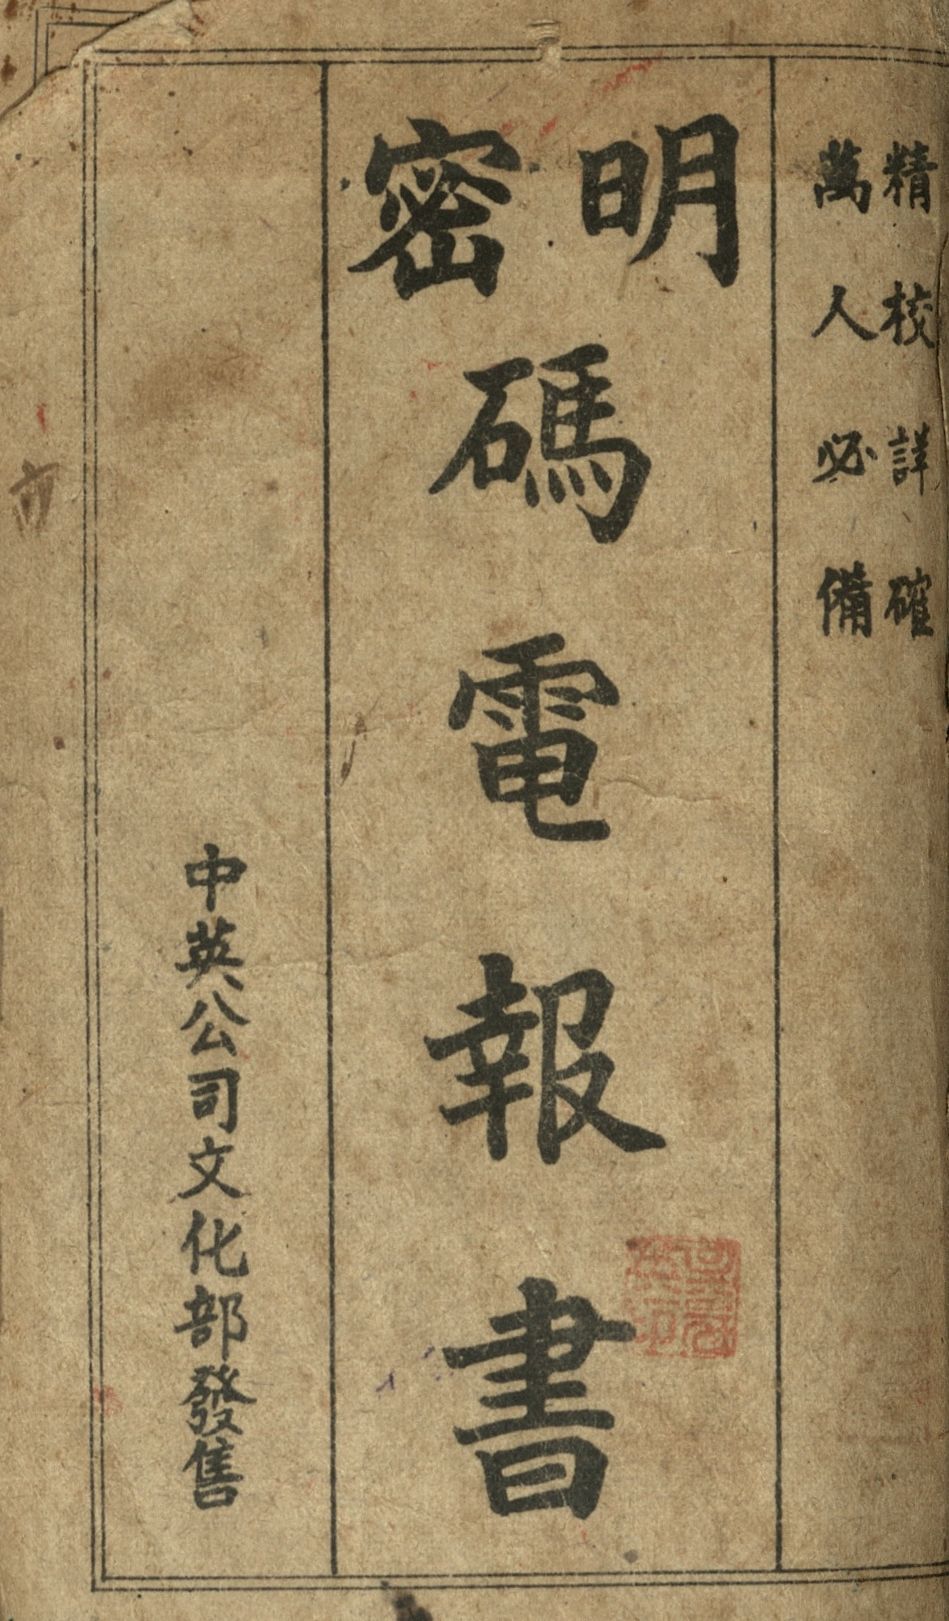 精校詳確
萬人必備
明密碼電報書
中英公司文化部發售